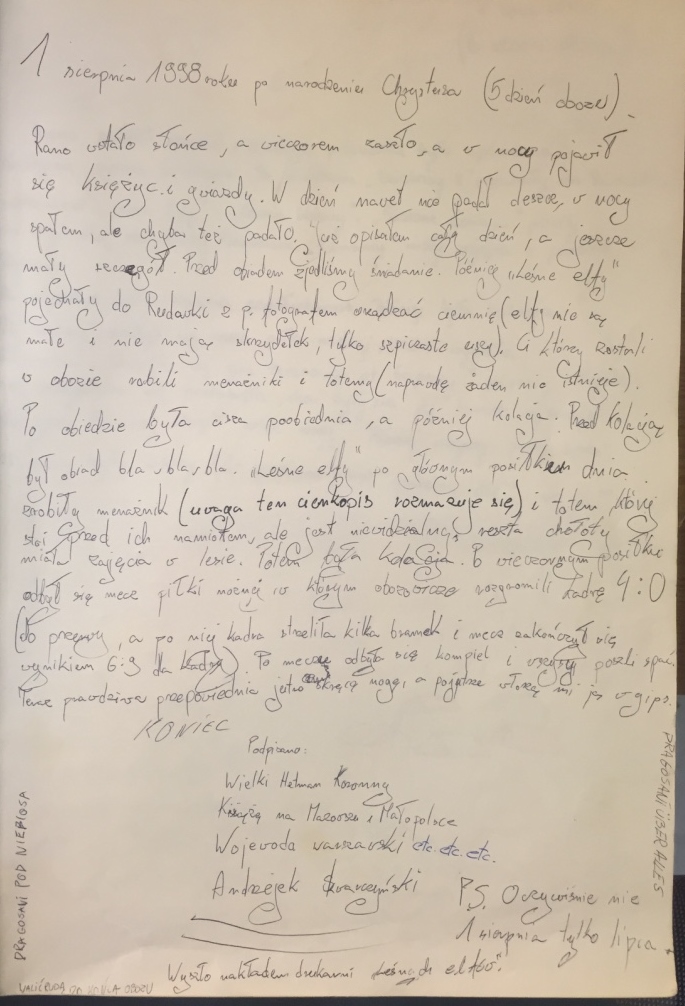 1 sierpnia 1998 roku po narodzeniu Chrystusa (5 dzień obozu).
Rano wstało słońce, a wieczorem zaszło, a w nocy pojawił
się księżyc i gwiazdy. W dzień nawet nie padał deszcz, w nocy
spałem, ale chyba też padało. Już opisałem cały dzień, a jeszcze
mały szczegół. Przed obiadem zjedliśmy śniadanie. Później "Leśne elfy"
pojechały do Rudawki z p. fotografem urządzać ciemnię (elfy nie są
małe i nie mają skrzydełek, tylko szpiczaste uszy). Ci którzy zostali
w obozie robili menażniki i totemy (naprawdę żaden nie istnieje).
Po obiedzie była cisza poobiednia, a później kolacja. Przed kolacją
był obiad bla bla bla. "Leśne elfy" po głównym posiłkiem dnia
zrobiły menażnik (uwaga ten cienkopis rozmazuje się) i totem, który
stoi przed ich namiotem, ale jest niewidzialny, reszta chołoty
miała zajęcia w lesie. Potem była kolacja. Po wieczornym posiłku
odbył się mecz piłki nożnej w którym obozowicze rozgromili kadrę 4:0
(do przerwy, a po niej kadra strzeliła kilka bramek i mecz zakończył się
wynikiem 6:9 dla kadry). Po meczu odbyła się kąpiel i wszyscy poszli spać.
Teraz prawdziwa przepowiednia jutro skręcę nogę, a pojutrze włożą mi ją w gips.
KONIEC
Podpisano:
Wielki Hetman Koronny
Książę na Mazowszu i Małopolsce
Wojewoda warszawski etc. etc. etc.
Andrzejek
P.S. Oczywiście nie
1 sierpnia tylko lipca.
Wyszło nakładem drukarni "Leśnych elfów".
DRAGOSANI POD NIEBIOSA
DRAGOSANI ÜBER ALLES
OBOZU